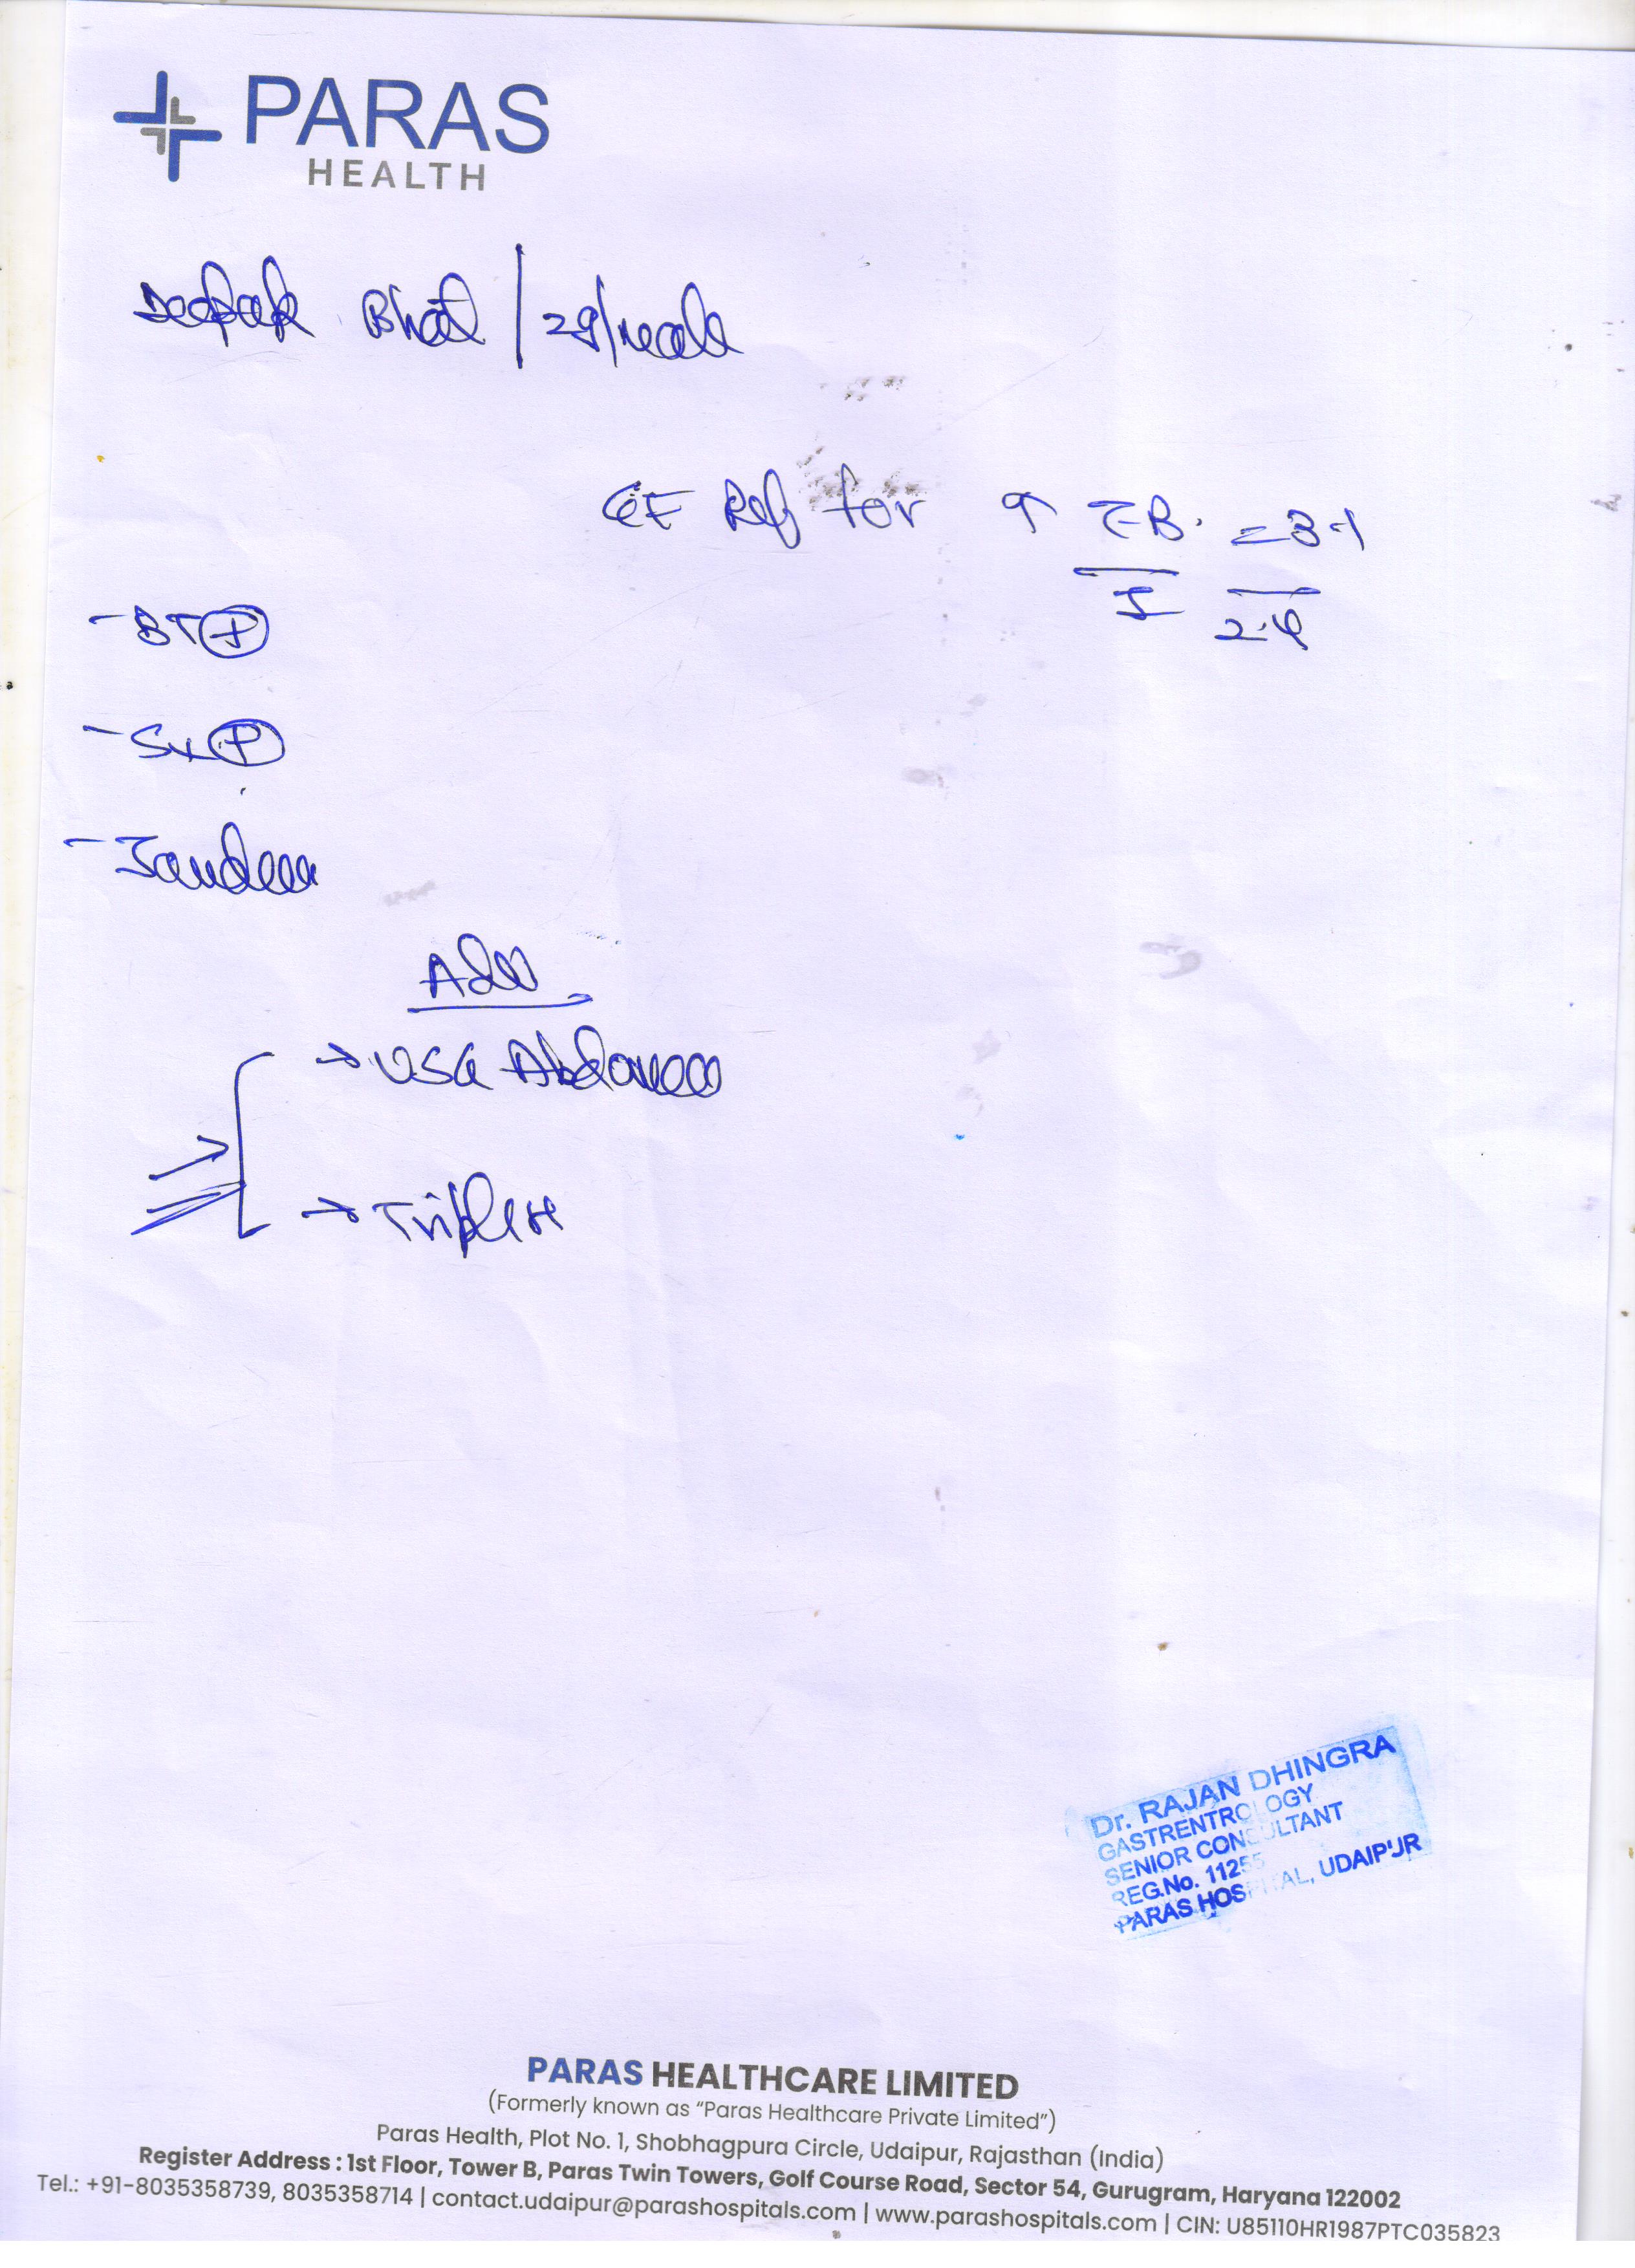 PARAS
HEALTH
Deepak Bhat / 29/male
GE Ref for ↑ T.B. = 3.1
I 2.4
- BT (+)
- Sx (+)
- Jaundice
Adv
→ USG Abdomen
→ Triple H
Dr. RAJAN DHINGRA
GASTRENTROLOGY
SENIOR CONSULTANT
REG.No. 11255
PARAS HOSPITAL, UDAIPUR
PARAS HEALTHCARE LIMITED
(Formerly known as "Paras Healthcare Private Limited")
Paras Health, Plot No. 1, Shobhagpura Circle, Udaipur, Rajasthan (India)
Register Address : 1st Floor, Tower B, Paras Twin Towers, Golf Course Road, Sector 54, Gurugram, Haryana 122002
Tel.: +91-8035358739, 8035358714 | contact.udaipur@parashospitals.com | www.parashospitals.com | CIN: U85110HR1987PTC035823